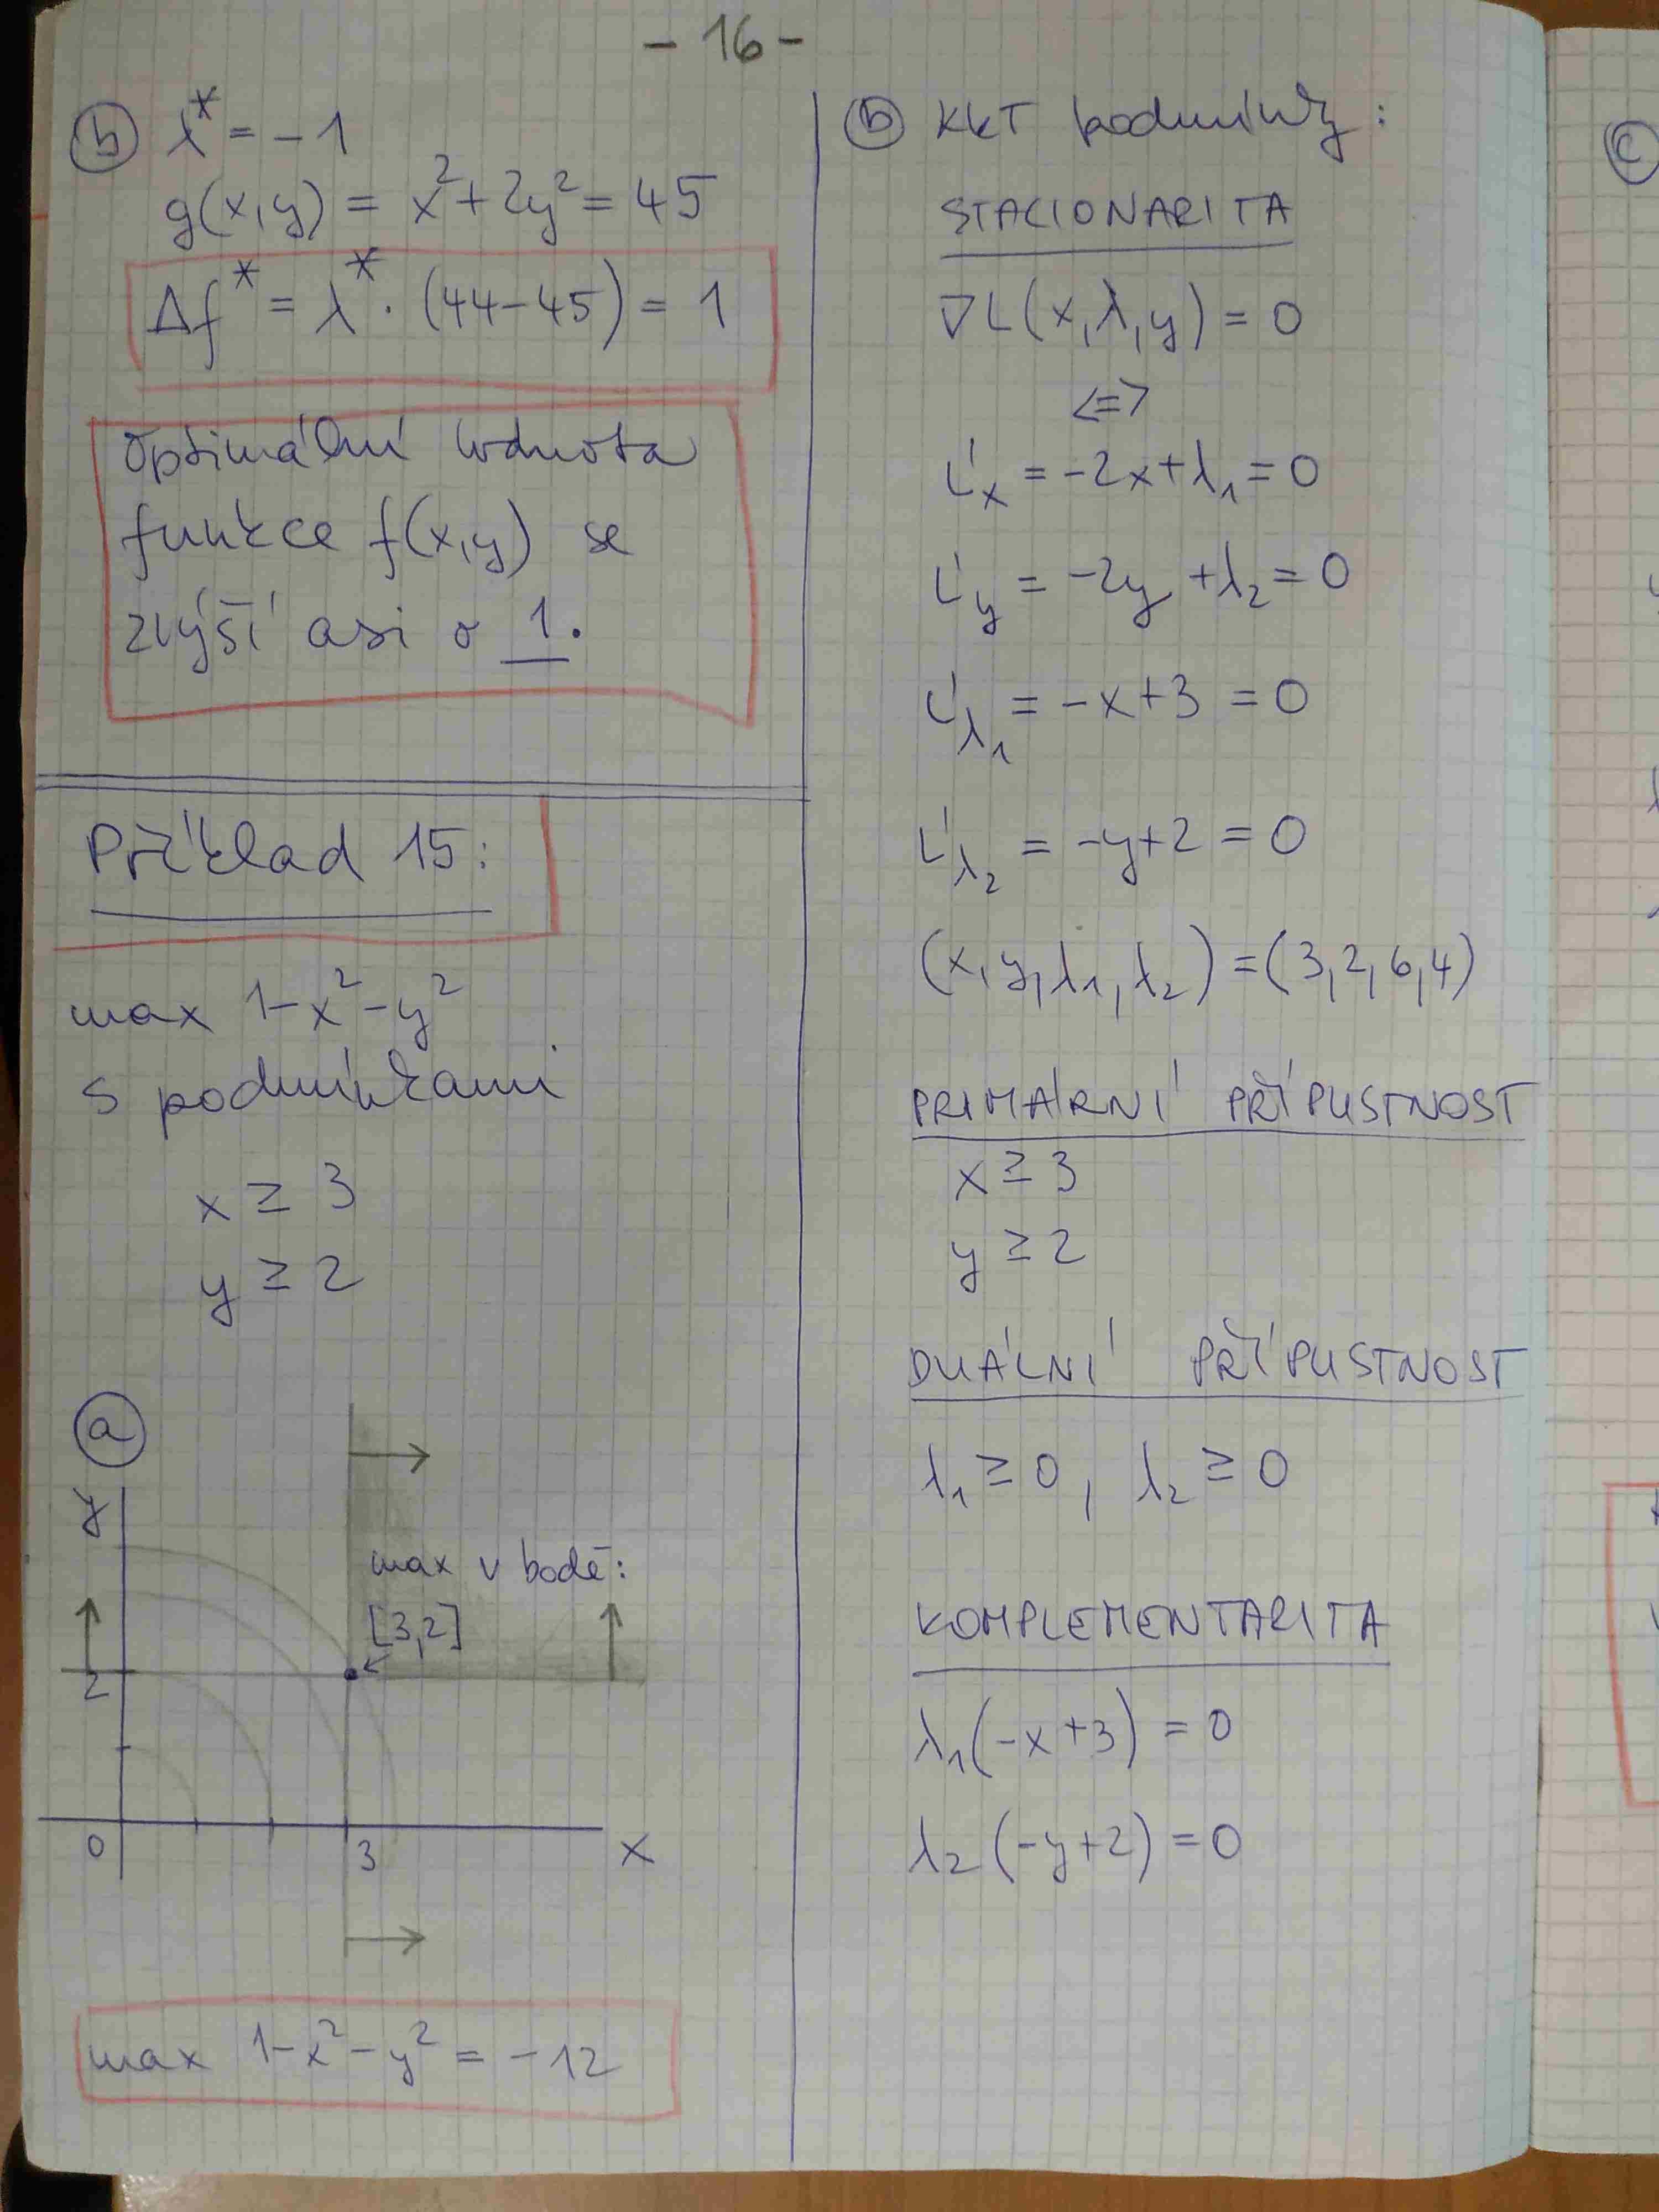 - 16 -
b λ* = -1
g(x,y) = x² + 2y² = 45
Δf* = λ* · (44-45) = 1
Optimální hodnota
funkce f(x,y) se
zvýší asi o 1.
Příklad 15:
max 1-x²-y²
s podmínkami
x ≥ 3
y ≥ 2
a
y
max v bodě:
[3,2]
2
0
3
x
max 1-x²-y² = -12
b KKT podmínky:
STACIONARITA
∇L(x,λ,y) = 0
<=>
L'x = -2x+λ₁ = 0
L'y = -2y +λ₂ = 0
L'λ₁ = -x+3 = 0
L'λ₂ = -y+2 = 0
(x,y,λ₁,λ₂) = (3,2,6,4)
PRIMÁRNÍ PŘÍPUSTNOST
x ≥ 3
y ≥ 2
DUÁLNÍ PŘÍPUSTNOST
λ₁ ≥ 0, λ₂ ≥ 0
KOMPLEMENTARITA
λ₁(-x+3) = 0
λ₂(-y+2) = 0
c